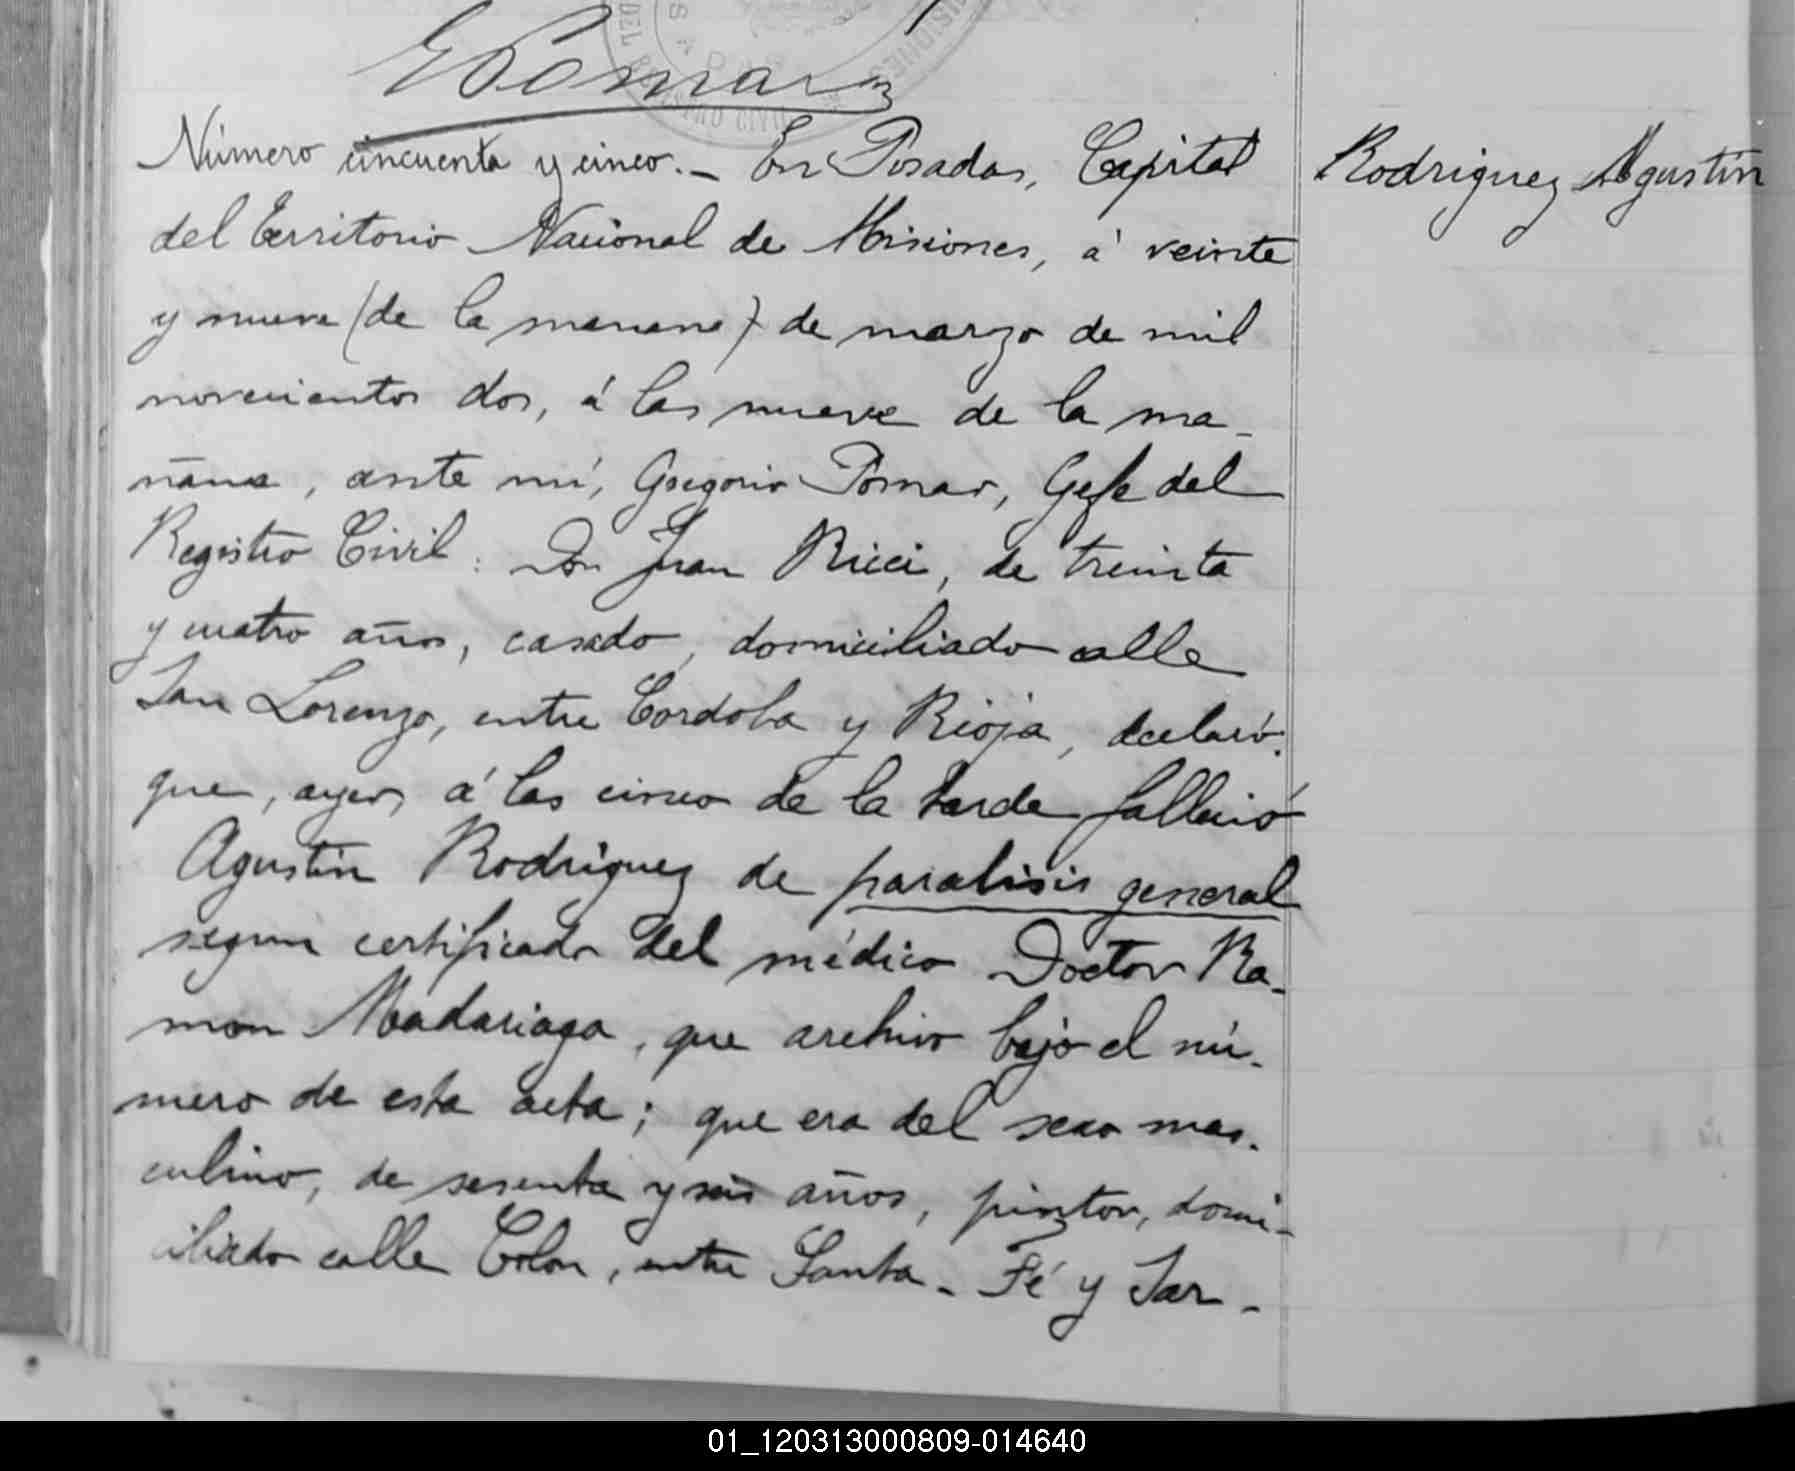 GPomar
Número cincuenta y cinco.- En Posadas, Capital
Rodriguez Agustin
del Territorio Nacional de Misiones, á veinte
y nueve (de la manana) de marzo de mil
novecientos dos, á las nueve de la ma-
ñana, ante mí, Gregorio Pomar, Gefe del
Registro Civil: Don Juan Ricci, de treinta
y cuatro años, casado, domiciliado calle
San Lorenzo, entre Cordoba y Rioja, declaró:
que, ayer, á las cinco de la tarde falleció
Agustin Rodriguez de paralisis general
segun certificado del médico Doctor Ra-
mon Madariaga, que archivo bajo el nú-
mero de esta acta; que era del sexo mas-
culino, de sesenta y seis años, pintor, domi-
ciliado calle Colon, entre Santa-Fé y Sar-
01_120313000809-014640